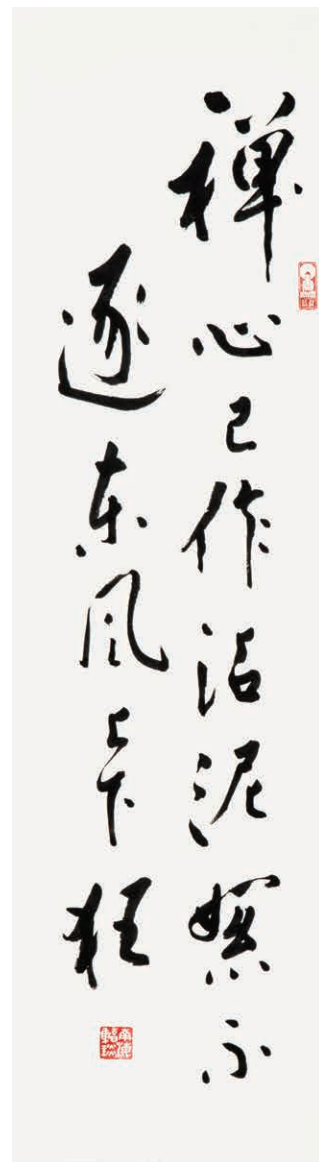 禪心已作沾泥絮不
逐東風上下狂